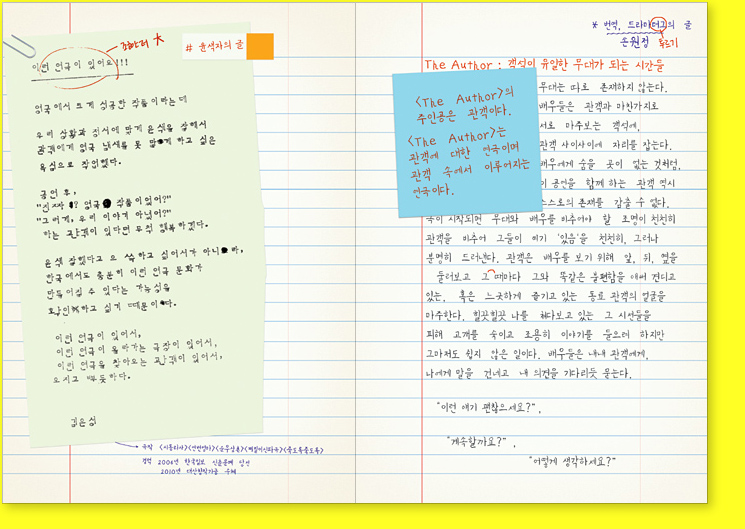 조한터 ★
# 윤색자의 글
이런 연극이 있어요!!!
영국에서 크게 성공한 작품이라는데
우리 상황과 정서에 맞게 윤색을 잘해서
관객에게 영국 냄새를 못 맡게 하고 싶은
욕심으로 작업했다.
공연 후,
"진짜 영국 작품이었어?"
"그러게, 우리 이야기 아니었어?"
하는 관객이 있다면 무척 행복하겠다.
윤색 잘했다고 으쓱하고 싶어서가 아니라,
한국에서도 충분히 이런 연극 문화가
만들어질 수 있다는 가능성을
확인하고 싶기 때문이다.
이런 연극이 있어서,
이런 연극이 올라가는 극장이 있어서,
이런 연극을 찾아오는 관객이 있어서,
으쓱하고 뿌듯하다.
김은성
극작 <시동라사><연변엄마><순우삼촌><뻘><목란언니><달나라연속극>
경력 2006년 한국일보 신춘문예 당선
2010년 대산창작기금 수혜
* 번역, 드라마터그의 글
손원정
투르기
The Author : 객석이 유일한 무대가 되는 시간들
<The Author>의
주인공은 관객이다.
<The Author>는
관객에 대한 연극이며
관객 속에서 이루어지는
연극이다.
무대는 따로 존재하지 않는다.
배우들은 관객과 마찬가지로
서로 마주보는 객석에,
관객 사이사이에 자리를 잡는다.
배우에게 숨을 곳이 없는 것처럼,
공연을 함께 하는 관객 역시
스스로의 존재를 감출 수 없다.
극이 시작되면 무대와 배우를 비추어야 할 조명이 천천히
관객을 비추어 그들이 여기 '있음'을 천천히, 그러나
분명히 드러낸다. 관객은 배우를 보기 위해 앞, 뒤, 옆을
둘러보고 그 때마다 그와 똑같은 불편함을 애써 견디고
있는, 혹은 느긋하게 즐기고 있는 동료 관객의 얼굴을
마주한다. 힐끗힐끗 나를 쳐다보고 있는 그 시선들을
피해 고개를 숙이고 조용히 이야기를 들으려 하지만
그마저도 쉽지 않은 일이다. 배우들은 내내 관객에게,
나에게 말을 건네고 내 의견을 기다리듯 묻는다.
"이런 얘기 괜찮으세요?",
"계속할까요?",
"어떻게 생각하세요?"